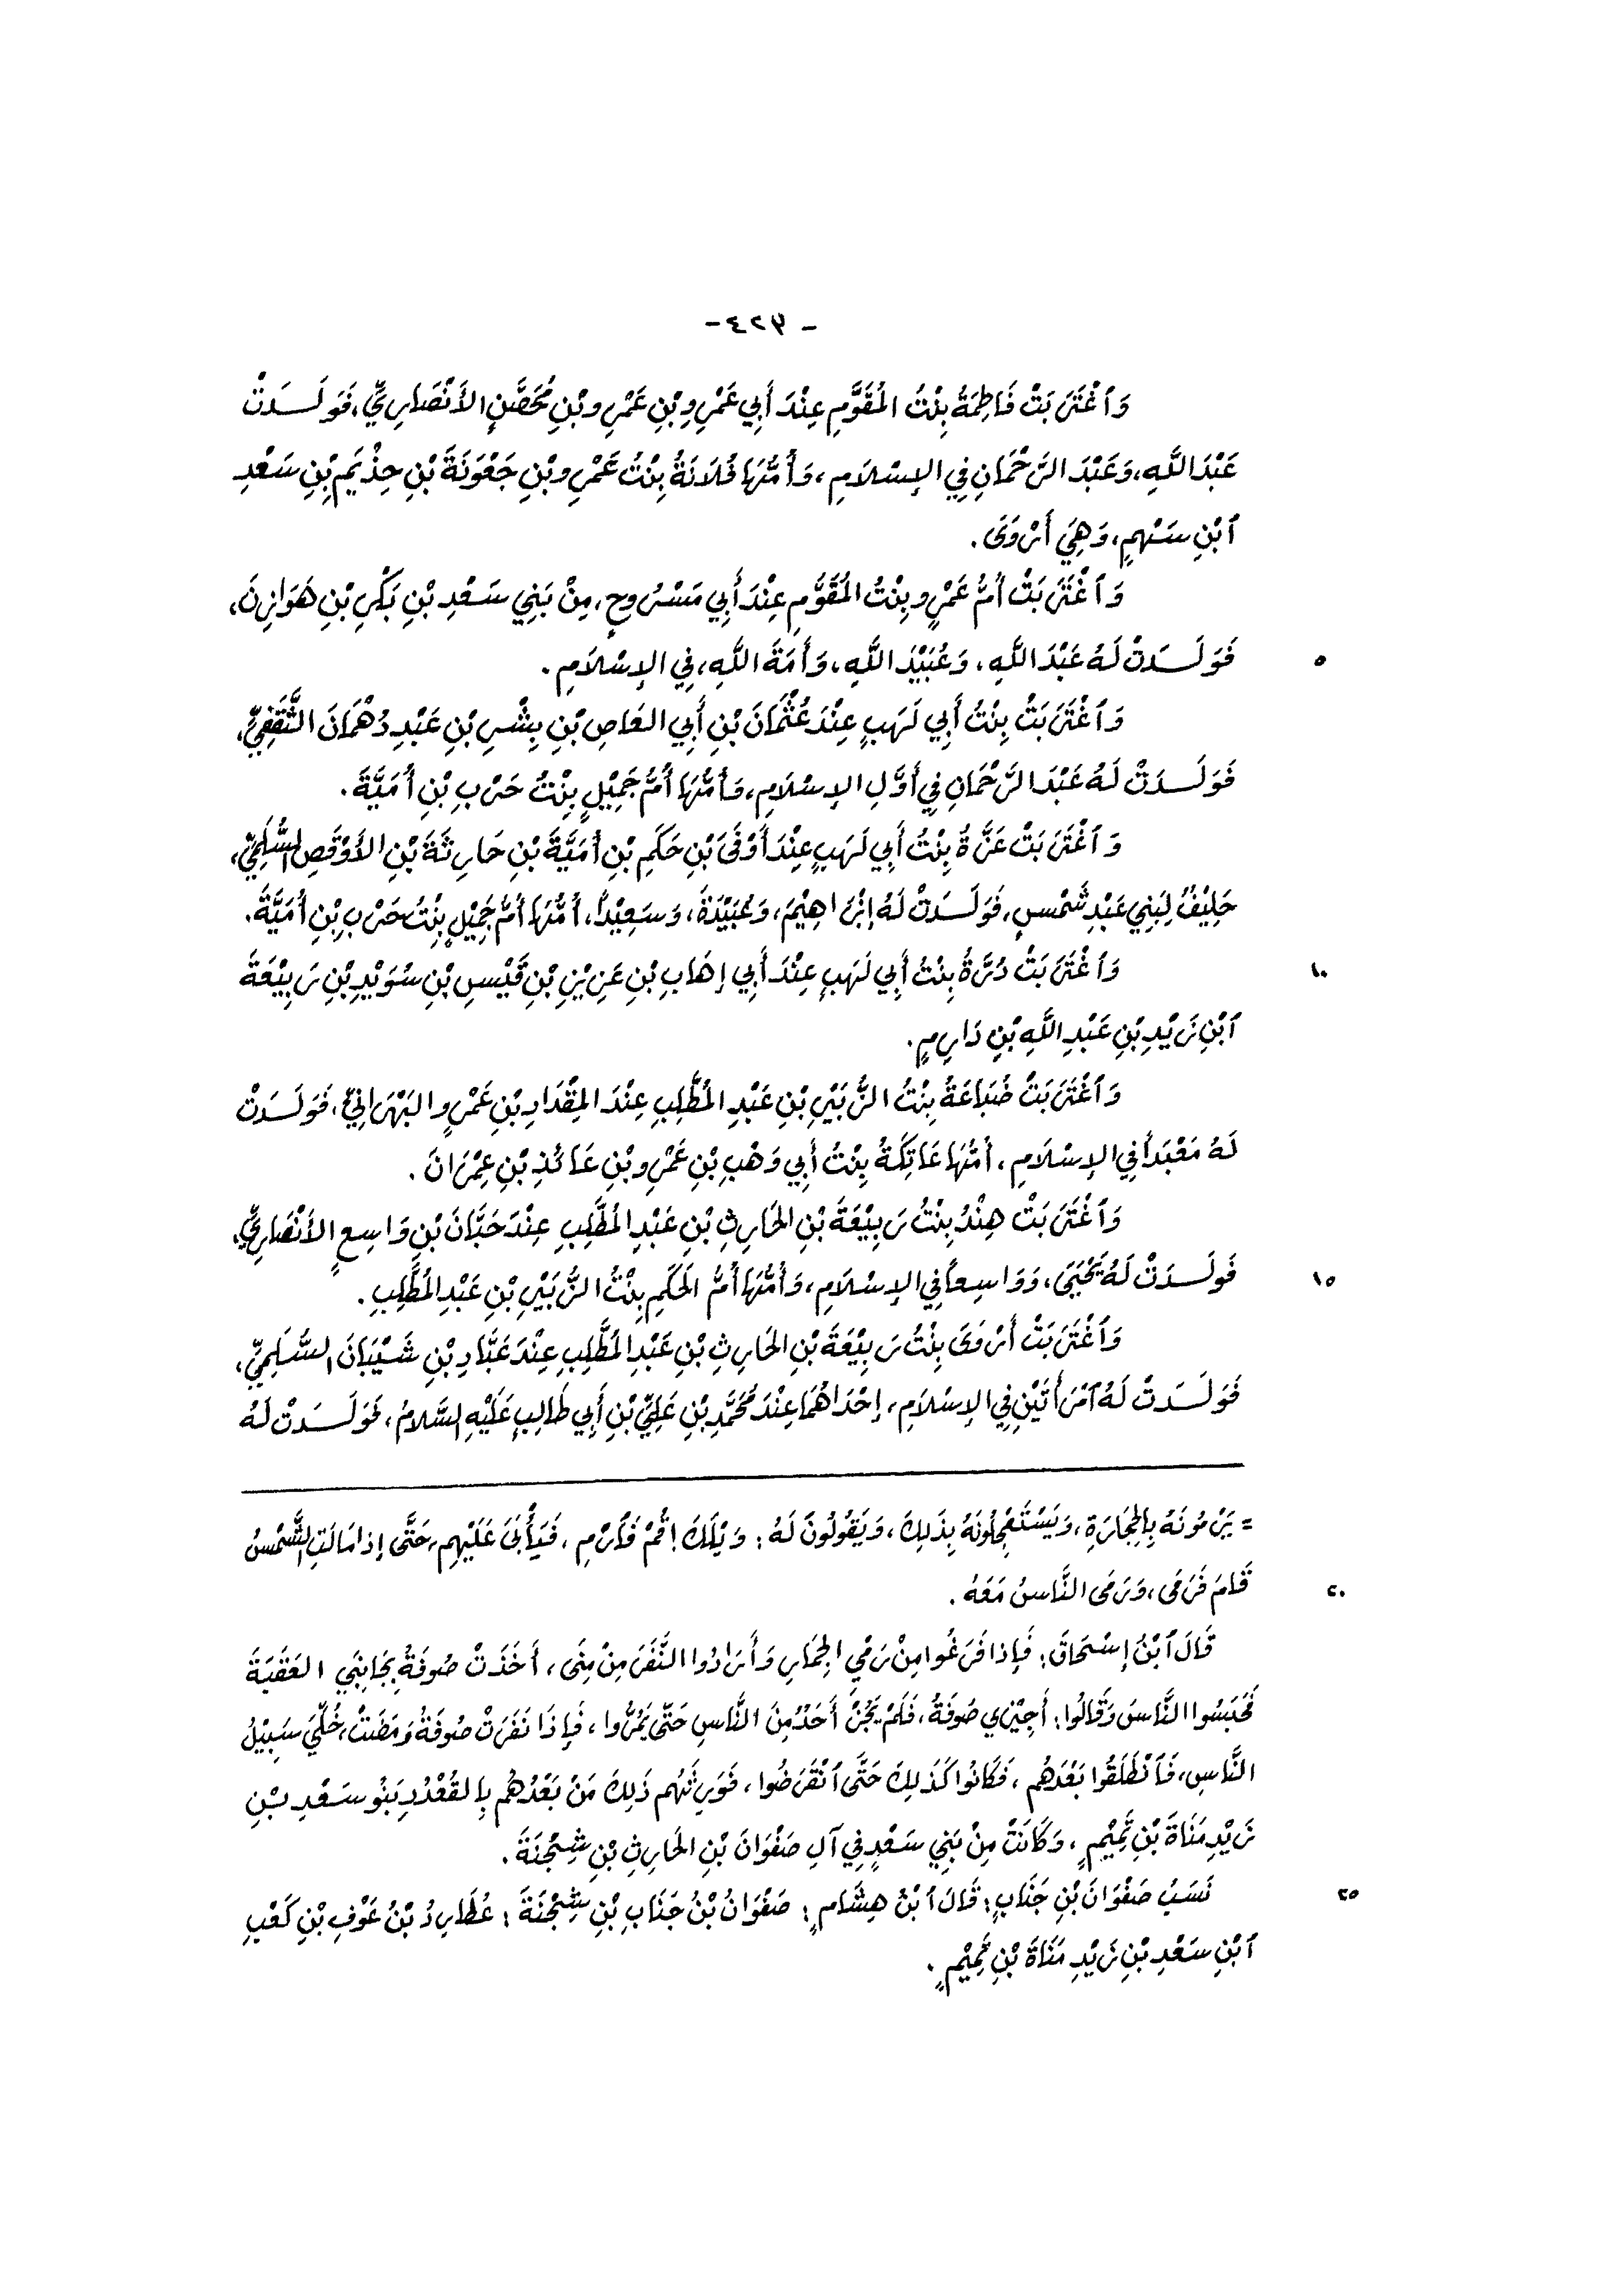 - ٤٢٧ -
وَٱغْتَرَبَتْ فَاطِمَةُ بِنْتُ المُقَوَّمِ عِنْدَ أَبِي عَمْرِو بْنِ عَمْرِو بْنِ مُحَصَّنٍ الأَنْصَارِيِّ، فَوَلَدَتْ
عَبْدَ اللَّهِ، وَعَبْدَ الرَّحْمَانِ فِي الإِسْلَامِ، وَأُمُّهَا فُلَانَةُ بِنْتُ عَمْرِو بْنِ جَعْوَنَةَ بْنِ حِذْيَمِ بْنِ سَعْدِ
ٱبْنِ سَهْمٍ، وَهِيَ أَرْوَى.
وَٱغْتَرَبَتْ أُمُّ عَمْرٍو بِنْتُ المُقَوَّمِ عِنْدَ أَبِي مَسْرُوحٍ، مِنْ بَنِي سَعْدِ بْنِ بَكْرِ بْنِ هَوَازِنَ،
٥ فَوَلَدَتْ لَهُ عَبْدَ اللَّهِ، وَعُبَيْدَ اللَّهِ، وَأَمَةَ اللَّهِ، فِي الإِسْلَامِ.
وَٱغْتَرَبَتْ بِنْتُ أَبِي لَهَبٍ عِنْدَ عُثْمَانَ بْنِ أَبِي العَاصِ بْنِ بِشْرِ بْنِ عَبْدِ دُهْمَانَ الثَّقَفِيِّ،
فَوَلَدَتْ لَهُ عَبْدَ الرَّحْمَانِ فِي أَوَّلِ الإِسْلَامِ، وَأُمُّهَا أُمُّ جَمِيْلٍ بِنْتُ حَرْبِ بْنِ أُمَيَّةَ.
وَٱغْتَرَبَتْ عَزَّةُ بِنْتُ أَبِي لَهَبٍ عِنْدَ أَوْفَى بْنِ حَكَمِ بْنِ أُمَيَّةَ بْنِ حَارِثَةَ بْنِ الأَوْقَصِ السُّلَمِيِّ،
حَلِيْفُ لِبَنِي عَبْدِ شَمْسٍ، فَوَلَدَتْ لَهُ إِبْرَاهِيْمَ، وَعُبَيْدَةَ، وَسَعِيْداً، أُمُّهَا أُمُّ جَمِيْلٍ بِنْتُ حَرْبِ بْنِ أُمَيَّةَ.
١٠ وَٱغْتَرَبَتْ دُرَّةُ بِنْتُ أَبِي لَهَبٍ عِنْدَ أَبِي إِهَابِ بْنِ عَزِيْزِ بْنِ قَيْسِ بْنِ سُوَيْدِ بْنِ رَبِيْعَةَ
ٱبْنِ زَيْدِ بْنِ عَبْدِ اللَّهِ بْنِ دَارِمٍ.
وَٱغْتَرَبَتْ ضُبَاعَةُ بِنْتُ الزُّبَيْرِ بْنِ عَبْدِ المُطَّلِبِ عِنْدَ المِقْدَادِ بْنِ عَمْرٍو البَهْرَانِيِّ، فَوَلَدَتْ
لَهُ مَعْبَداً فِي الإِسْلَامِ، أُمُّهَا عَاتِكَةُ بِنْتُ أَبِي وَهْبِ بْنِ عَمْرِو بْنِ عَائِذِ بْنِ عِمْرَانَ.
وَٱغْتَرَبَتْ هِنْدُ بِنْتُ رَبِيْعَةَ بْنِ الحَارِثِ بْنِ عَبْدِ المُطَّلِبِ عِنْدَ حَبَّانَ بْنِ وَاسِعٍ الأَنْصَارِيِّ،
١٥ فَوَلَدَتْ لَهُ يَحْيَى، وَوَاسِعاً فِي الإِسْلَامِ، وَأُمُّهَا أُمُّ الحَكَمِ بِنْتُ الزُّبَيْرِ بْنِ عَبْدِ المُطَّلِبِ.
وَٱغْتَرَبَتْ أَرْوَى بِنْتُ رَبِيْعَةَ بْنِ الحَارِثِ بْنِ عَبْدِ المُطَّلِبِ عِنْدَ عَبَّادِ بْنِ شَيْبَانَ السُّلَمِيِّ،
فَوَلَدَتْ لَهُ ٱمْرَأَتَيْنِ فِي الإِسْلَامِ، إِحْدَاهُمَا عِنْدَ مُحَمَّدِ بْنِ عَلِيِّ بْنِ أَبِي طَالِبٍ عَلَيْهِ السَّلَامُ، فَوَلَدَتْ لَهُ
= يَرْمُونَهُ بِالحِجَارَةِ، وَيَسْتَعْجِلُونَهُ بِذَلِكَ، وَيَقُولُونَ لَهُ: وَيْلَكَ! قُمْ فَٱرْمِ، فَيَأْبَى عَلَيْهِم، حَتَّى إِذَا مَالَتِ الشَّمْسُ
٢٠ قَامَ فَرَمَى، وَرَمَى النَّاسُ مَعَهُ.
قَالَ ٱبْنُ إِسْحَاقَ: فَإِذَا فَرَغُوا مِنْ رَمْيِ الجِمَارِ وَأَرَادُوا النَّفَرَ مِنْ مِنًى، أَخَذَتْ صُوفَةُ بِجَانِبَيِ العَقَبَةِ
فَحَبَسُوا النَّاسَ وَقَالُوا: أَجِيْزِي صُوفَةُ، فَلَمْ يَجُزْ أَحَدٌ مِنَ النَّاسِ حَتَّى يَمُرُّوا، فَإِذَا نَفَرَتْ صُوفَةُ وَمَضَتْ، خُلِّيَ سَبِيْلُ
النَّاسِ، فَٱنْطَلَقُوا بَعْدَهُم، فَكَانُوا كَذَلِكَ حَتَّى ٱنْقَرَضُوا، فَوَرِثَهُم ذَلِكَ مَنْ بَعْدُهُم بِالقُعْدُدِ بَنُو سَعْدِ بْنِ
زَيْدِ مَنَاةَ بْنِ تَمِيْمٍ، وَكَانَتْ مِنْ بَنِي سَعْدٍ فِي آلِ صَفْوَانَ بْنِ الحَارِثِ بْنِ شِجْنَةَ.
٢٥ نَسَبُ صَفْوَانَ بْنِ جَنَابٍ: قَالَ ٱبْنُ هِشَامٍ: صَفْوَانُ بْنُ جَنَابِ بْنِ شِجْنَةَ: عُطَارِدُ بْنُ عَوْفِ بْنِ كَعْبِ
ٱبْنِ سَعْدِ بْنِ زَيْدِ مَنَاةَ بْنِ تَمِيْمٍ.